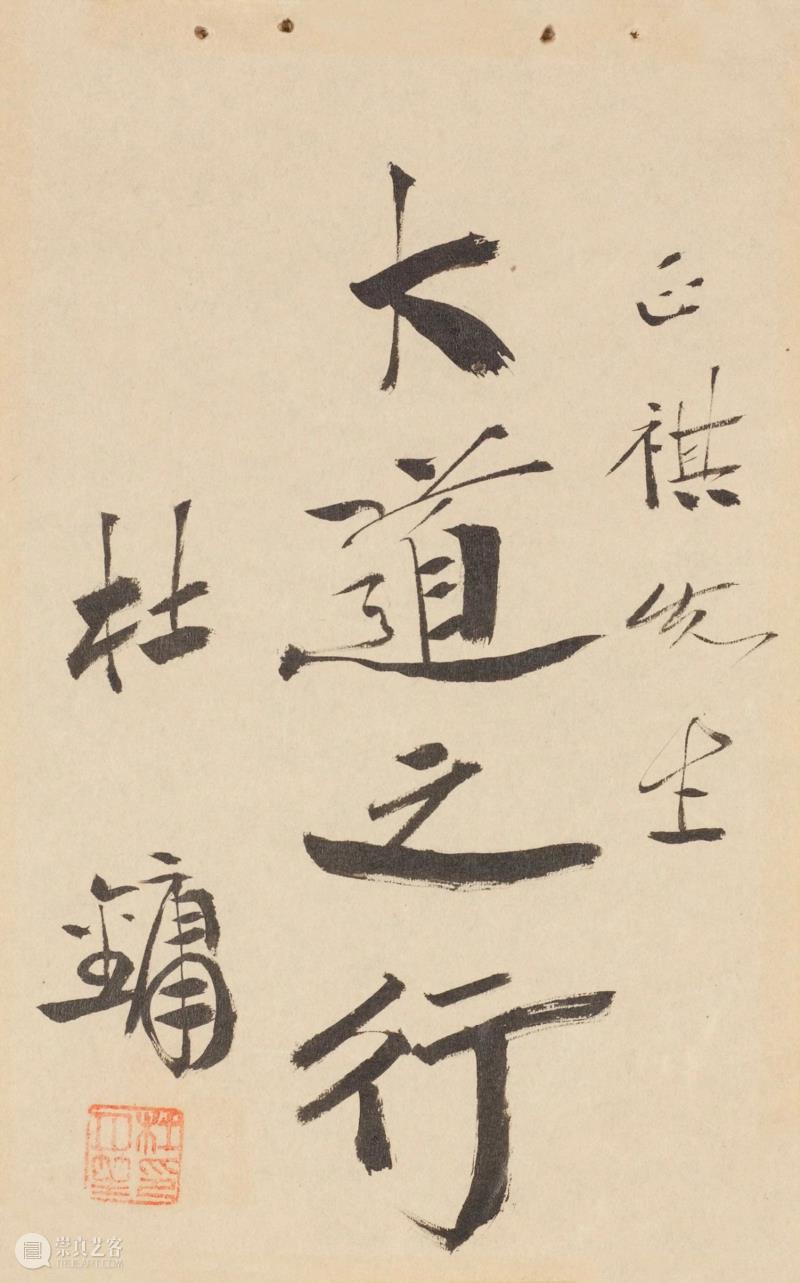 正祺先生
大道之行
杜鏞
杜印月笙
崇真艺客
TRUEART.COM